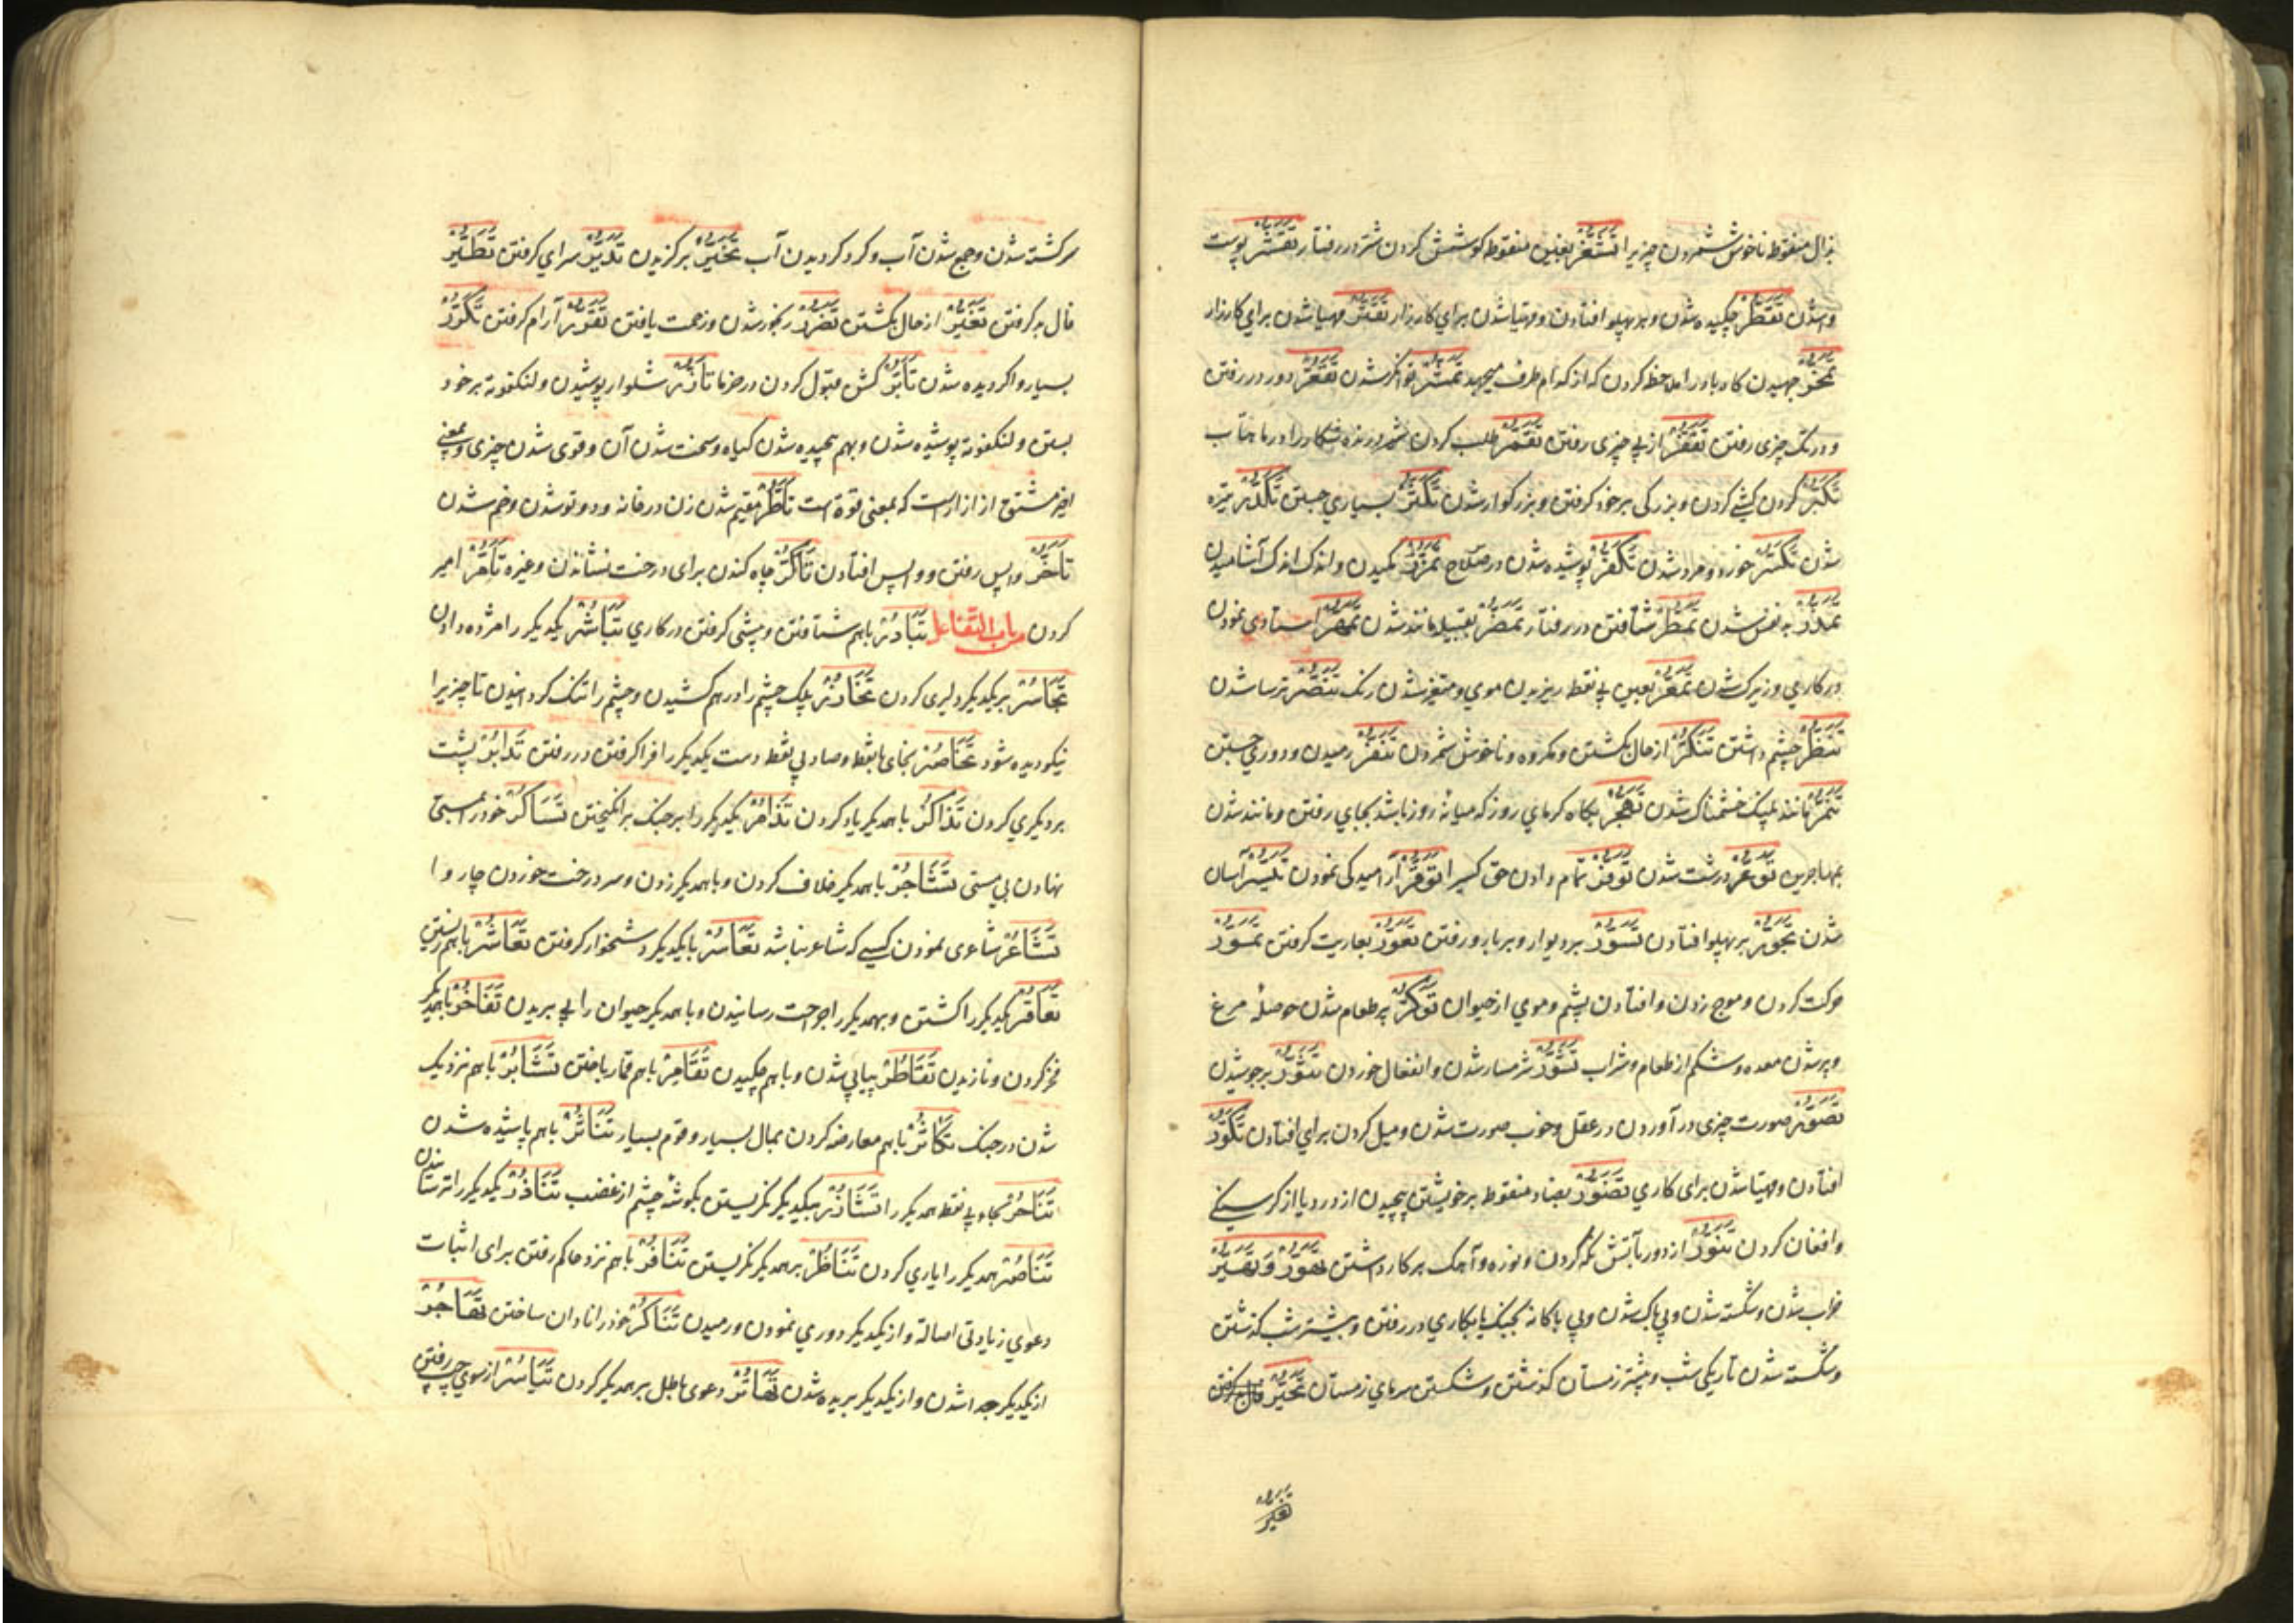 بذال منقوطه ناخوش شمردن چیزیرا تَشَغُّر بغین منقوطه کوشش کردن شتر در رفتار تَقَشُّر پوست
وا شدن تَقَطُّر چکیده شدن و بر پهلو افتادن و مهیا شدن برای کارزار تَقَتُّر مهیا شدن برای کارزار
تَمَخُّر جهیدن کاه و باد را ملاحظه کردن که از کدام طرف میجهد تَمَشُّر توانکر شدن تَقَعُّر دور در رفتن
و در تک چیزی رفتن تَقَفُّر از پی چیزی رفتن تَقَمُّر طلب کردن شیر درنده شکار را در ماهتاب
تَکَبُّر کردن کشی کردن و بزرکی بر خود کرفتن و بزرکوار شدن تَکَثُّر بسیاری جستن تَکَدُّر تیره
شدن تَکَسُّر خورد و مرد شدن تَکَفُّر پوشیده شدن در سلاح تَمَزُّر مکیدن و اندک اندک آشامیدن
تَمَذُّر بد نفس شدن تَمَطُّر شتافتن در رفتار تَمَضُّر بقبیله مانند شدن تَمَهُّر استادی نمودن
در کاری و زیرک شدن تَمَعُّر بعین بی نقطه ریزیدن موی و متغیر شدن رنک تَنَصُّر ترسا شدن
تَنَظُّر چشم داشتن تَنَکُّر از حال بکشتن و مکروه و ناخوش شمردن تَنَفُّر رمیدن و دوری جستن
تَنَمُّر مانند پلنک خشمناک شدن تَهَجُّر بکاه کرمای روز که میانهٔ روز باشد بجای رفتن و مانند شدن
بمهاجرین تَوَعُّر درشت شدن تَوَفُّر تمام دادن حق کسیرا تَوَقُّر آرامیدکی نمودن تَیَسُّر آسان
شدن تَجَوُّر بر پهلو افتادن تَسَوُّر بر دیوار و بر باره رفتن تَعَوُّر بعاریت کرفتن تَمَوُّر
حرکت کردن و موج زدن و افتادن پشم و موی از حیوان تَوَکُّر پر طعام شدن حوصلهٔ مرغ
و پر شدن معده و شکم از طعام و شراب تَشَوُّر شرمسار شدن و انفعال خوردن تَثَوُّر بر جوشیدن
تَصَوُّر صورت چیزی در آوردن در عقل و خوب صورت شدن و میل کردن برای افتادن تَکَوُّر
افتادن و مهیا شدن برای کاری تَضَوُّر بضاد منقوطه بر خویشتن پیچیدن از درد یا از کرسنکی
و افغان کردن تَنَوُّر از دور بآتش نکه کردن و نوره و آهک بر کار داشتن تَهَوُّر و تَهَیُّر
خراب شدن و شکسته شدن و بی باک شدن و بی باکانه بجنک یا بکاری در رفتن و بیشتر شب کذشتن
و شکسته شدن تاریکی شب و بیشتر زمستان کذشتن و شکستن سرمای زمستان تَحَیُّر
سرکشته شدن و جمع شدن آب و کرد کردیدن آب تَخَیُّر بر کزیدن تَدَیُّر سرای کرفتن تَطَیُّر
فال بد کرفتن تَغَیُّر از حال بکشتن تَضَرُّر رنجور شدن و زحمت یافتن تَقَرُّر آرام کرفتن تَکَرُّر
بسیار وا کردیده شدن تَأَبُّر کشن قبول کردن درخرما تَأَزُّر شلوار پوشیدن و لنکفوته بر خود
بستن و لنکفوته پوشیده شدن و بهم پیچیده شدن کیاه و سخت شدن آن و قوی شدن چیزی و بمعنی
اخیر مشتق از ازار است که بمعنی قوة است تَأَطُّر مقیم شدن زن در خانه و دو تو شدن و خم شدن
تَأَخُّر واپس رفتن و واپس افتادن تَأَکُّر چاه کندن برای درخت نشاندن و غیره تَأَمُّر امیر
کردن باب التفاعل تَبَادُر باهم شتافتن و پیشی کرفتن در کاری تَبَاشُر یکدیکر را مژده دادن
تَجَاسُر بر یکدیکر دلیری کردن تَخَازُر پلک چشم را در هم کشیدن و چشم را تنک کردانیدن تا چیزیرا
نیکو دیده شود تَخَاصُر بخای با نقطه و صاد بی نقطه دست یکدیکر را فرا کرفتن در رفتن تَدَابُر پشت
بر دیکری کردن تَذَاکُر با همدیکر یاد کردن تَذَامُر یکدیکر را بر جنک برانکیختن تَسَاکُر خود را بمستی
نهادن بی مستی تَشَاجُر با همدیکر خلاف کردن و با همدیکر زدن و سر درخت خوردن چاروا
تَشَاعُر شاعری نمودن کسی که شاعر نباشد تَعَاسُر با یکدیکر دشخوار کرفتن تَعَاشُر باهم زیستن
تَعَاقُر یکدیکر را کشتن و بهمدیکر جراحت رسانیدن و با همدیکر حیوان را پی بریدن تَفَاخُر با همدیکر
فخر کردن و نازیدن تَقَاطُر پیاپی شدن و باهم چکیدن تَقَامُر باهم قمار باختن تَشَابُر باهم نزدیک
شدن در جنک تَکَاثُر باهم معارضه کردن بمال بسیار و قوم بسیار تَنَاثُر باهم پاشیده شدن
تَنَاحُر بحاء بی نقطه همدیکر را تَشَازُر بیکدیکر نکریستن بکوشهٔ چشم از غضب تَنَاذُر یکدیکر را ترسانیدن
تَنَاصُر همدیکر را یاری کردن تَنَاظُر بر همدیکر نکریستن تَنَافُر باهم نزد حاکم رفتن برای اثبات
دعوی زیادتی اصالة و از یکدیکر دوری نمودن و رمیدن تَنَاکُر خود را نادان ساختن تَهَاجُر
از یکدیکر جدا شدن و از یکدیکر بریده شدن تَهَاتُر دعوی باطل بر همدیکر کردن تَیَاسُر از سوی چپ رفتن